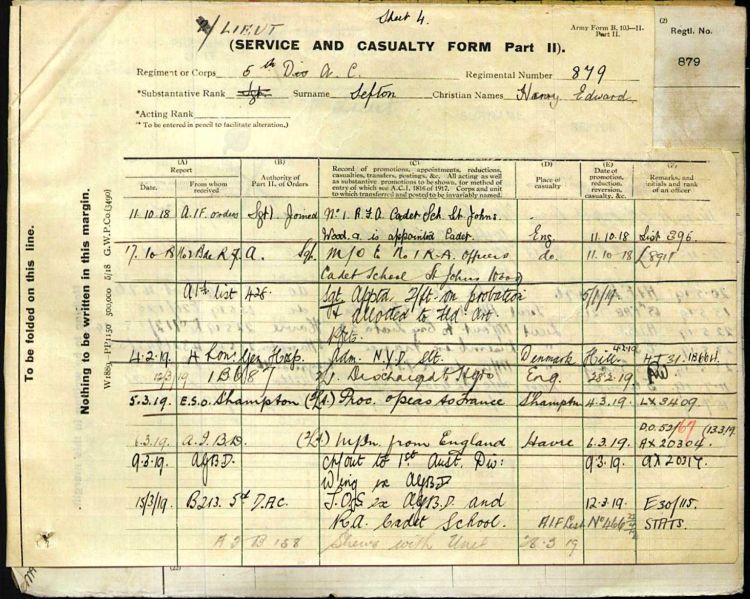 2/LIEUT
Sheet 4.
Army Form B. 103—II.
Part II.
(2)
Regtl. No.
879
(SERVICE AND CASUALTY FORM Part II).
Regiment or Corps 5th Div A. C. Regimental Number 879
*Substantive Rank Sgt. Surname Sefton Christian Names Harry Edward
*Acting Rank
* To be entered in pencil to facilitate alteration.)
To be folded on this line.
Nothing to be written in this margin.
(A)
Report
Date.
From whom received
(B)
Authority of Part II. of Orders
(C)
Record of promotions, appointments, reductions,
casualties, transfers, postings, &c. All acting as well
as substantive promotions to be shown, for method of
entry of which see A.C.I. 1816 of 1917. Corps and unit
to which transferred and posted to be invariably named.
(D)
Place of casualty
(E)
Date of promotion, reduction, reversion, casualty, &c.
(F)
Remarks, and initials and rank of an officer
11.10.18 A.I.F. orders Sgt) Joined No 1 R.F.A Cadet Sch. St Johns.
Wood. & is appointed Cadet. Eng. 11.10.18 List 396.
17.10.18 Bde R.F.A. Sgt. M/O No 1 R.A. Officers do. 11.10.18
Cadet School St Johns Wood
list 428 Sgt Apptd 2/Lt. on probation 5/1/19
& allotted to Fld Art.
Rfts.
4.2.19 4 Lon: Gen Hosp. Adm. N.Y.D. Slt. Denmark Hill 4.2.19
12/3/19 Discharged to Eng. 28.2.19
5.3.19. E.S.O. Shampton (2/Lt.) Proc. o'seas to France Shampton 4.3.19. LX 3409.
D.O. 53/67 (13319.
6.3.19. A.I.B.D. (2/Lt) M/In from England Havre 6.3.19. AX 20304.
9.3.19. AGBD. M/out to 1st Aust. Div: 9.3.19.
Wing ex AGBD
15/3/19. B213. 5th D.A.C. T.O.S ex AGBD and 12.3.19. E30/115.
R.A. Cadet School. AIF List No 466 STATS.
Shews with Unit 28.3.19